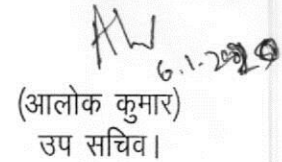 6.1.2020
(आलोक कुमार)
उप सचिव।